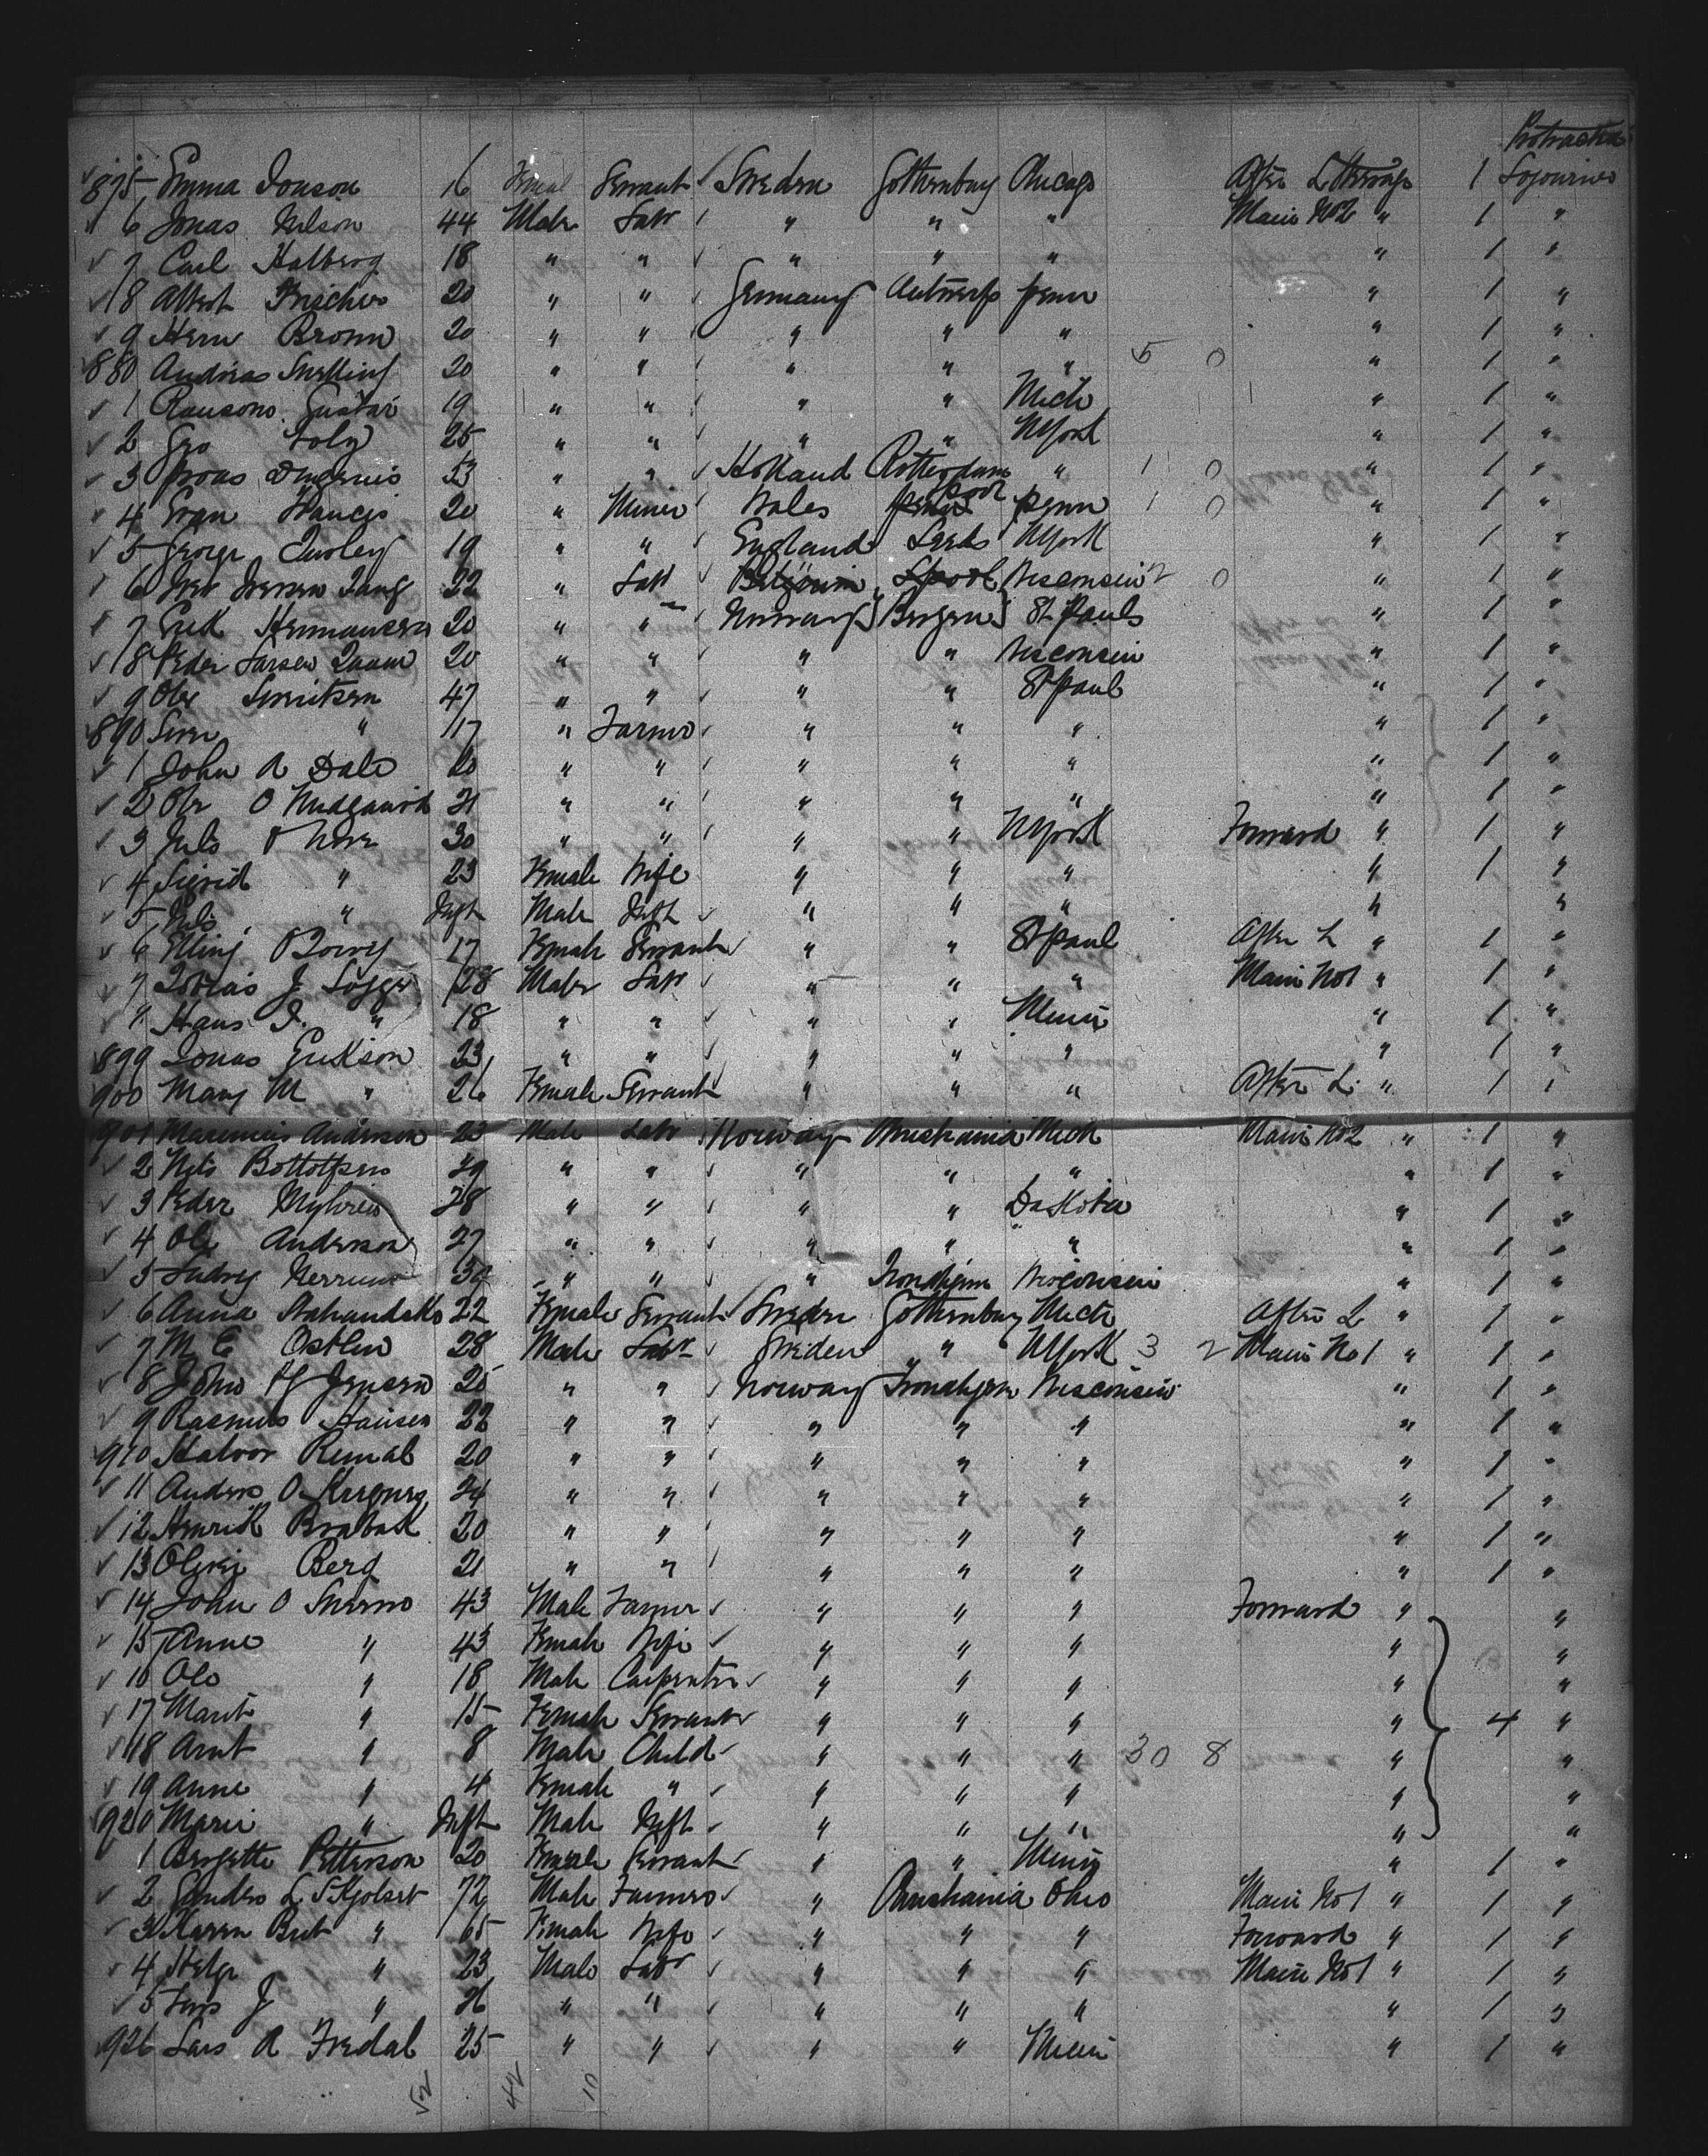 Protracted
875 Emma Jonson 16 Femal Servant Sweden Gothenburg Chicago After L Steerage 1 Sojourner
6 Jonas Nelson 44 Male Labr " " " Main No2 " 1 "
7 Carl Halberg 18 " " " " " " 1 "
8 Albert Frischer 20 " " Germany Antwerp Penn " 1 "
9 Brown 20 " " " " " " 1 "
880 Andreas Snelling 20 " " " " " 5 0 " 1 "
1 Gustav 19 " " " " Mich " 1 "
2 Geo 25 " " " " NYork " 1 "
3 53 " " Holland Rotterdam " 1 0 " 1 "
4 Evan Francis 20 " Miner Wales pool Penn 1 0 " 1 "
5 George 19 " " England Leeds NYork " 1 "
6 22 " Labr Belgium Lpool Wisconsin 2 0 " 1 "
7 Erik Hermansen 20 " " Norway Bergen St Pauls " 1 "
8 Peder Larsen 20 " " " " Wisconsin " 1 "
9 Ole 47 " " " " St Paul " 1 "
890 Sven " 17 " Farmer " " " " 1 "
1 John A Dale 20 " " " " " " 1 "
2 Ole O 21 " " " " " " 1 "
3 Nils O 30 " " " " NYork Forward " 1 "
4 Sigrid " 23 Female Wife " " " " 1 "
5 Nils " Inft Male Inft " " " " "
6 17 Female Servant " " St Paul After L " 1 "
7 Tobias J 28 Male Labr " " " Main No1 " 1 "
" Hans J. " 18 " " " " Minn " 1 "
899 Jonas Erikson 23 " " " " " " 1 "
900 Mary M " 26 Female Servant " " " After L. " 1 "
901 Anderson 23 Male Labr Norway Christiania Mich Main No2 " 1 "
2 Nils Bottolfsen 29 " " " " " " 1 "
3 Peder Myhren 28 " " " " Dakota " 1 "
4 Ole Anderson 27 " " " " " " 1 "
5 Ludvig 30 " " " Trondhjem Wisconsin " 1 "
6 Anna 22 Female Servant Sweden Gothenburg Mich After L " 1 "
7 M E Ostlen 28 Male Labr Sweden " NYork 3 2 Main No1 " 1 "
8 John Jensen 25 " " Norway Trondhjem Wisconsin " 1 "
9 Rasmus Hansen 22 " " " " " " 1 "
910 Halvor 20 " " " " " " 1 "
11 Anders O 24 " " " " " " 1 "
12 Henrik Brabak 20 " " " " " " 1 "
13 Berg 21 " " " " " " 1 "
14 John O 43 Male Farmer " " " Forward " "
15 Anne " 43 Female Wife " " " " "
16 Ole " 18 Male Carpenter " " " " "
17 Marit " 15 Female Servant " " " " 4 "
18 Arnt " 8 Male Child " " " 30 8 " "
19 Anne " 4 Female " " " " " "
920 Marie " Inft Male Inft " " " " "
1 Bergette Petterson 20 Female Servant " " Minn " 1 "
2 L 72 Male Farmer " Christiania Ohio Main No1 " 1 "
3 Karen " 65 Female Wife " " " Forward " 1 "
4 Helge " 23 Male Labr " " " Main No1 " 1 "
5 Lars J " 26 " " " " " " 1 "
926 Lars A Fredal 25 " " " " Minn " 1 "
52 42 10